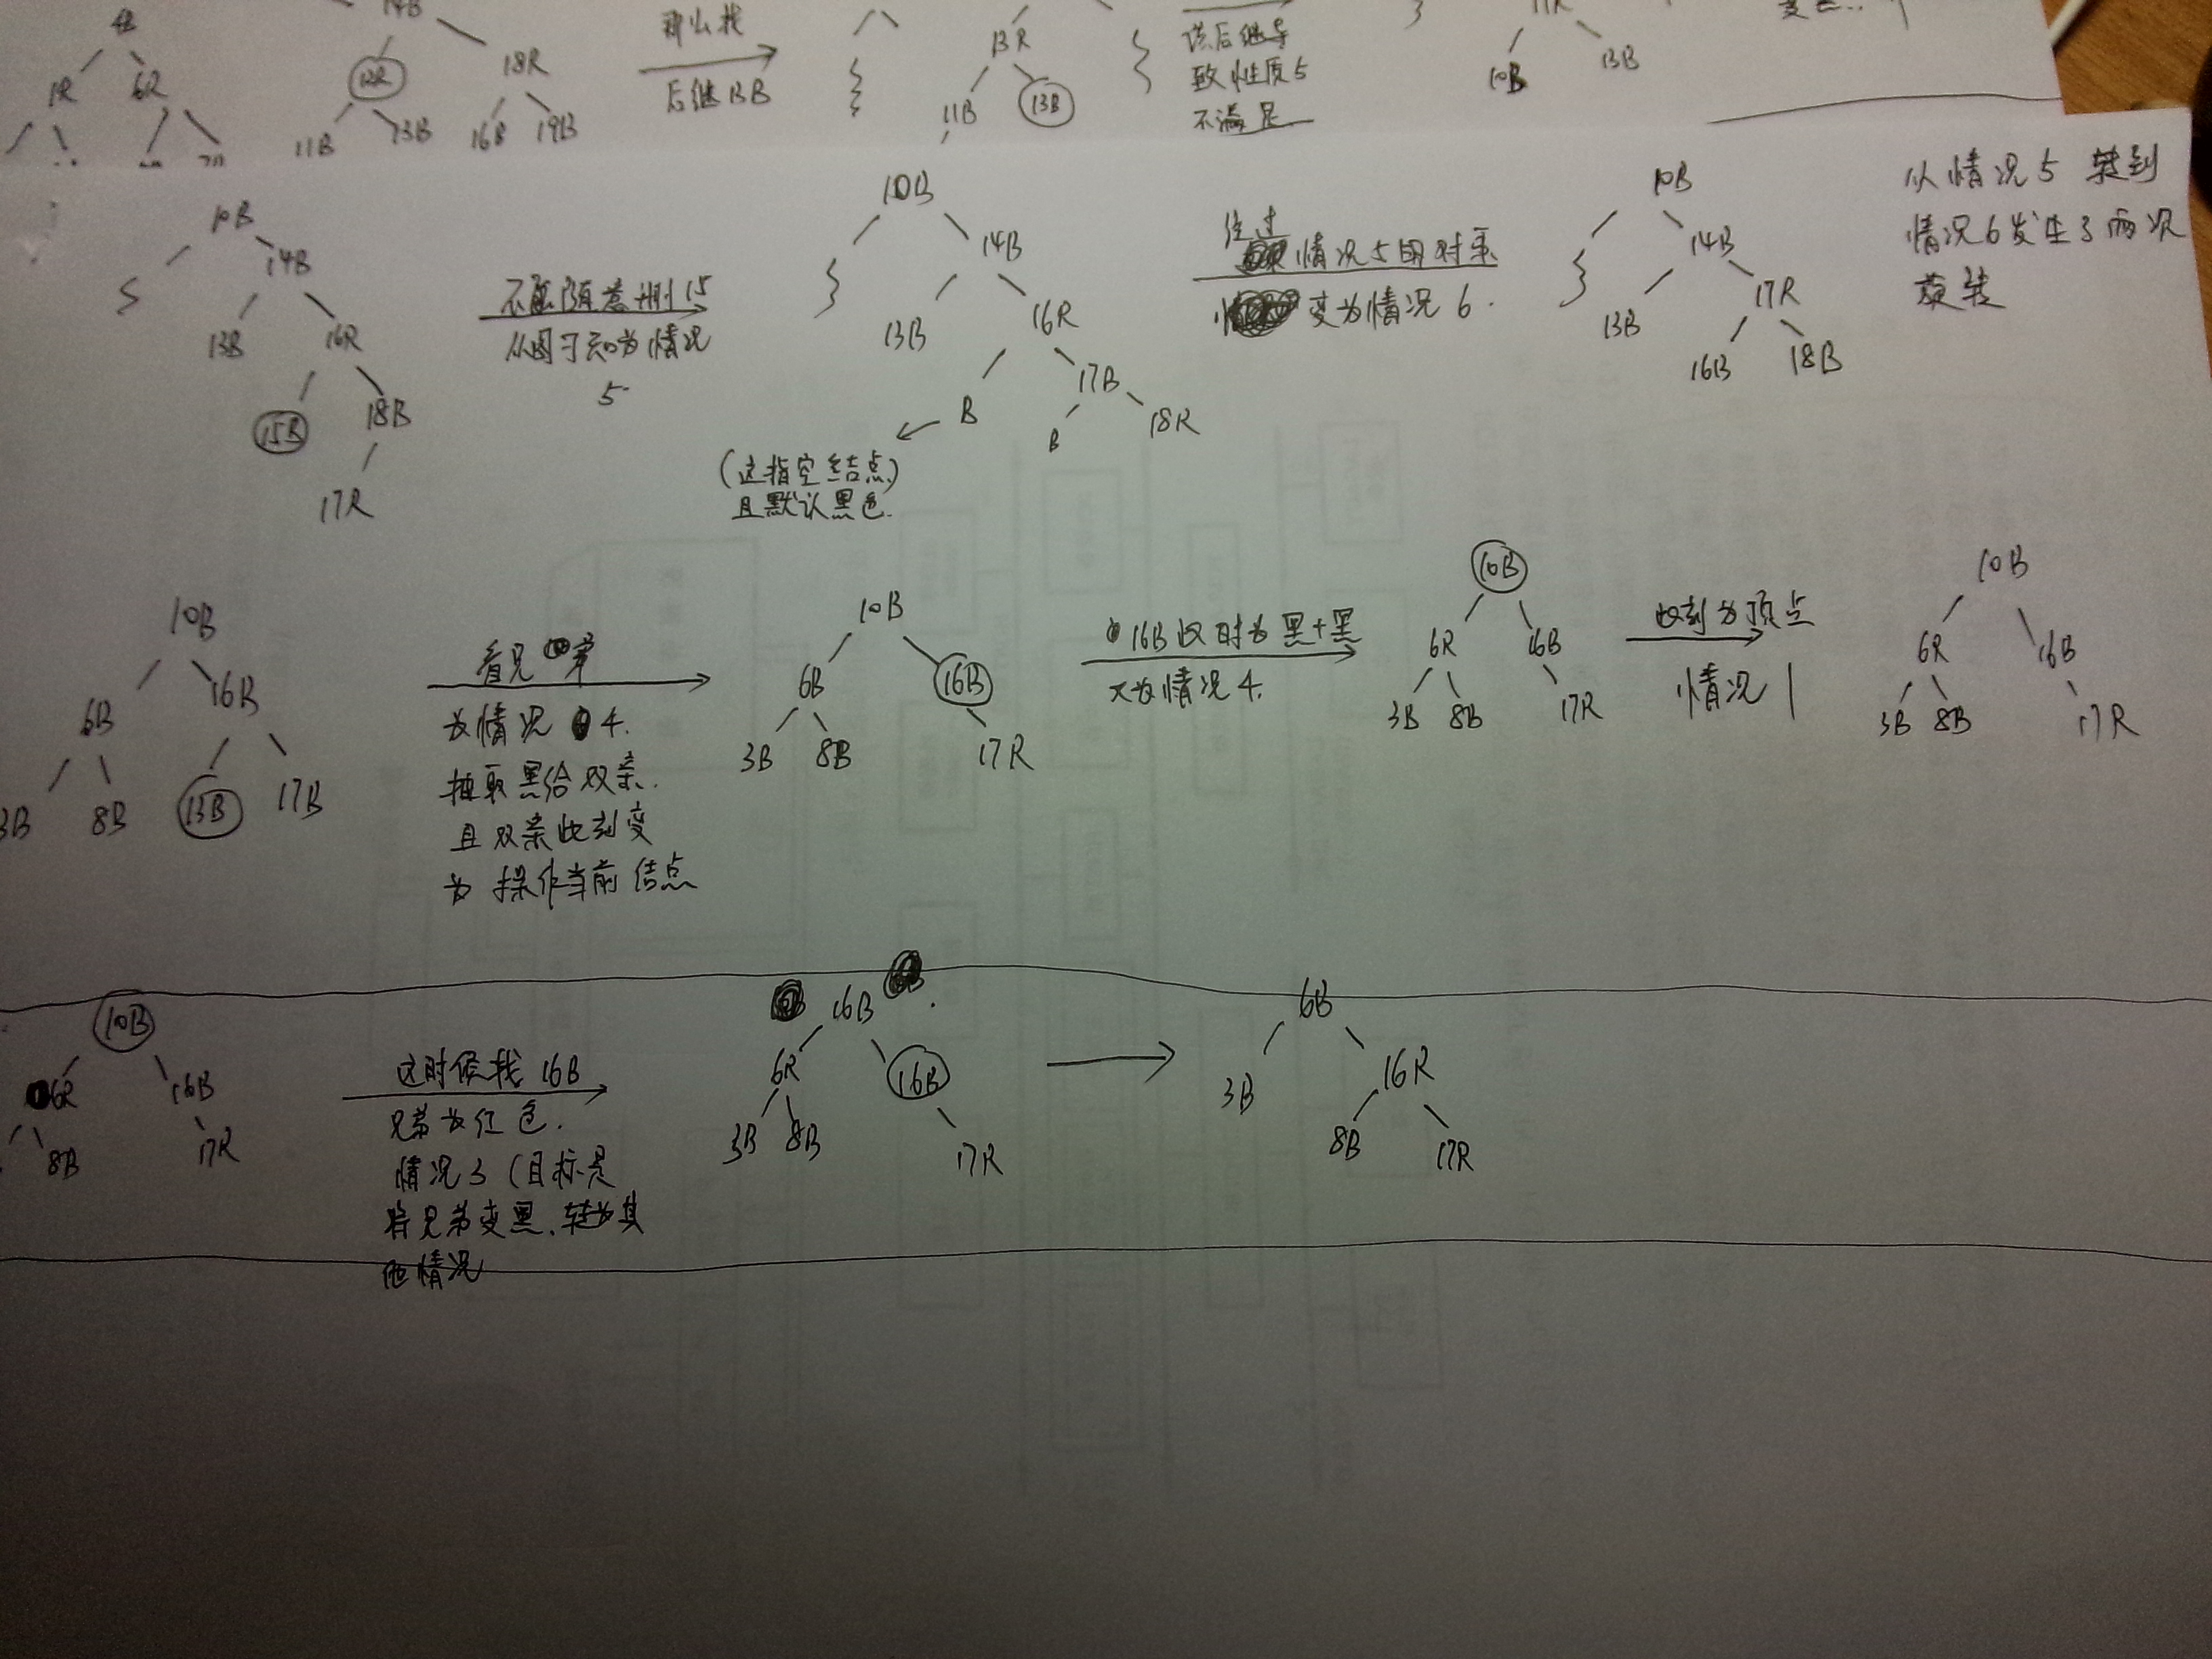 14B
1R 6R
12R 18R
11B 13B 16B 19B
那么找
后继13B
13R
11B 13B
该后继导
致性质5
不满足
11R
10B 13B
10B
14B
13B 16R
15B 18B
17R
不能随意删15
从图可知为情况
5
10B
14B
13B 16R
B 17B
B 18R
(这指空结点)
且默认黑色.
经过
情况5用对策
变为情况6.
10B
14B
13B 17R
16B 18B
从情况5转到
情况6发生了两次
旋转
10B
6B 16B
3B 8B 13B 17B
看兄弟
为情况4.
抽取黑给双亲.
且双亲此刻变
为操作当前结点
10B
6B 16B
3B 8B 17R
16B此时为黑+黑
又为情况4.
10B
6R 16B
3B 8B 17R
此刻为顶点
情况1
10B
6R 16B
3B 8B 17R
10B
6R 16B
8B 17R
这时候找16B
兄弟为红色.
情况3(目标是
将兄弟变黑.转为其
他情况
16B
6R 16B
3B 8B 17R
6B
3B 16R
8B 17R